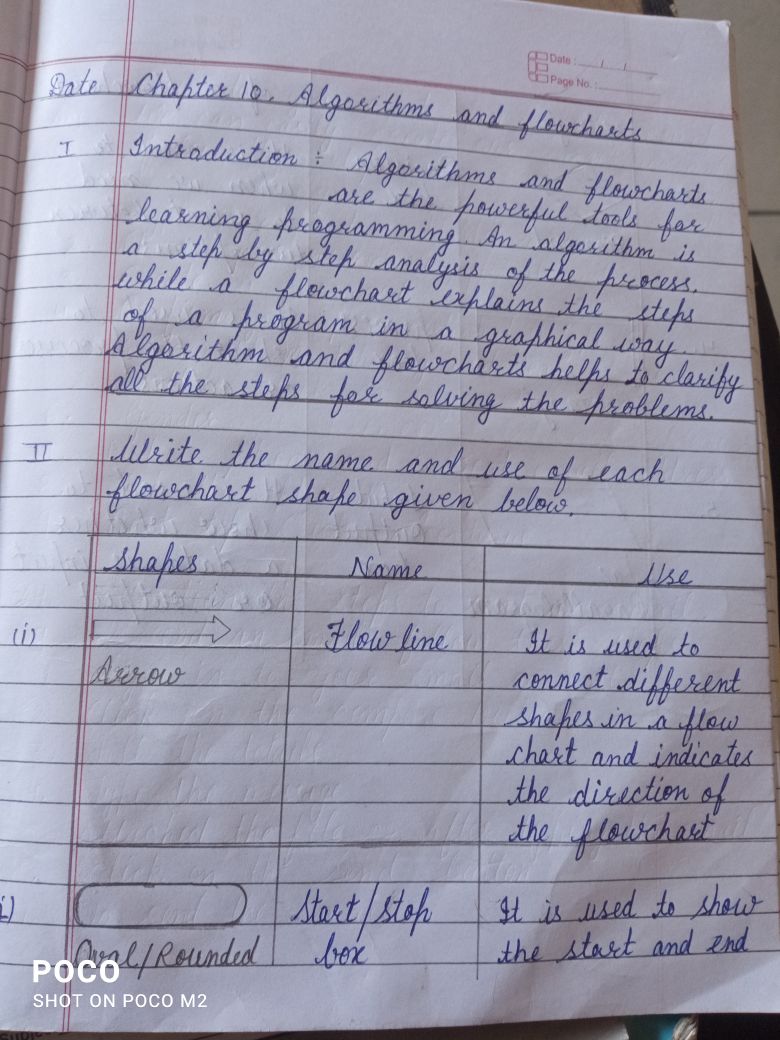 Date : / /
Page No. :
Date Chapter 10. Algorithms and flowcharts
I Introduction ÷ Algorithms and flowcharts
are the powerful tools for
learning programming. An algorithm is
a step by step analysis of the process.
while a flowchart explains the steps
of a program in a graphical way.
Algorithm and flowcharts helps to clarify
all the steps for solving the problems.
II Write the name and use of each
flowchart shape given below.
Shapes Name Use
(i) Flow line It is used to
Arrow connect different
shapes in a flow
chart and indicates
the direction of
the flowchart
Start/stop It is used to show
Oval/Rounded box the start and end
POCO
SHOT ON POCO M2